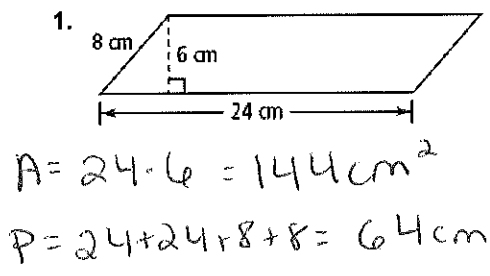 1.
8 cm
6 cm
24 cm
A = 24 · 6 = 144 cm²
P = 24 + 24 + 8 + 8 = 64 cm